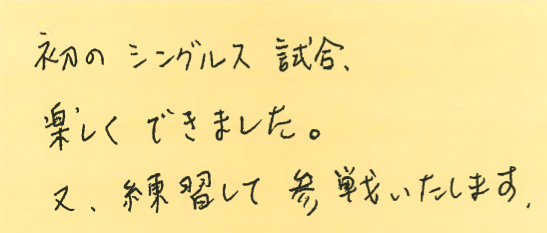 初の シングルス 試合、
楽しく できました。
又、練習して 参戦いたします。